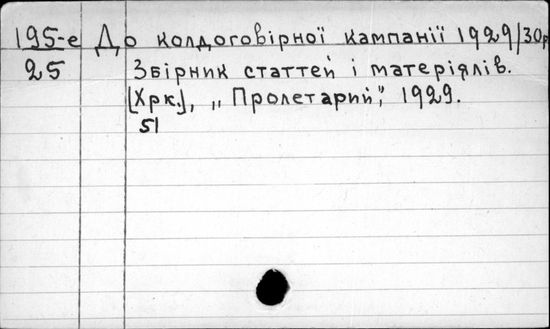 195-е До колдоговірної кампанії 1929/30р
25 Збірник статтей і матеріялів.
[Хрк.], „Пролетарий", 1929.
51